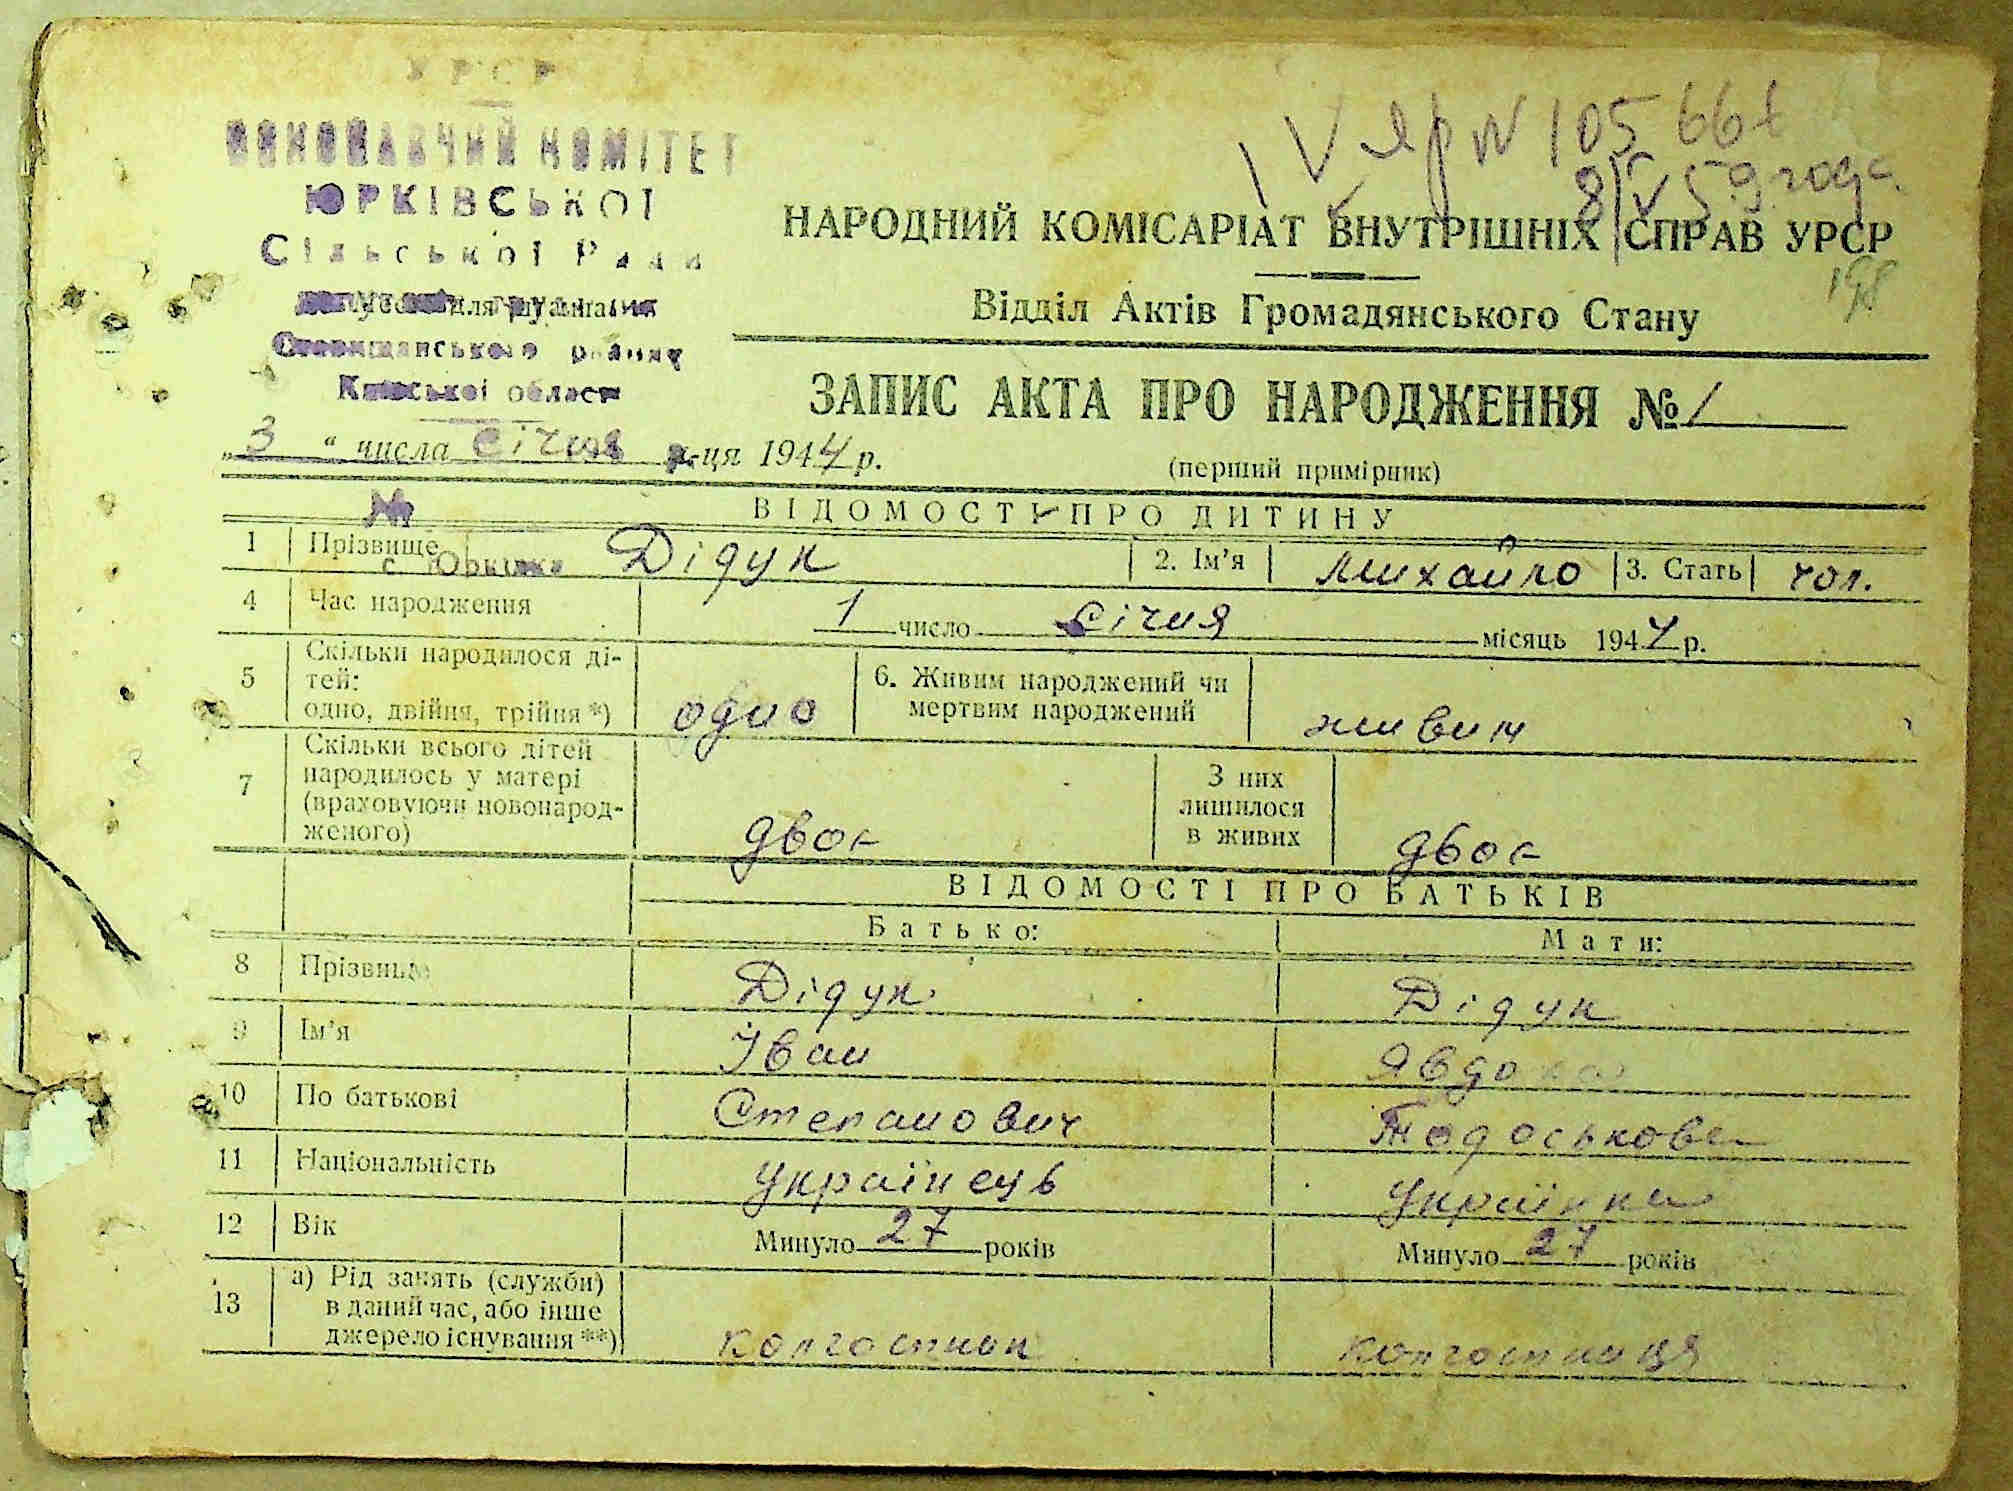 УРСР
ВИКОНАВЧИЙ КОМІТЕТ
ЮРКІВСЬКОЇ
Сільської Ради
депутатів трудящих
Ставищанського району
Київської області
№
с. Юрківка
105 661
8/V 59 года
198
НАРОДНИЙ КОМІСАРІАТ ВНУТРІШНІХ СПРАВ УРСР
Відділ Актів Громадянського Стану
ЗАПИС АКТА ПРО НАРОДЖЕННЯ № 1
„3“ числа січня м-ця 1944 р.
(перший примірник)
ВІДОМОСТІ ПРО ДИТИНУ
1 Прізвище Дідук 2. Ім'я Михайло 3. Стать чол.
4 Час народження 1 число січня місяць 1944 р.
5 Скільки народилося ді-
тей:
одно, двійня, трійня *) одно
6. Живим народжений чи
мертвим народжений живим
7 Скільки всього дітей
народилось у матері
(враховуючи новонарод-
женого) двоє
З них
лишилося
в живих двоє
ВІДОМОСТІ ПРО БАТЬКІВ
Батько: Мати:
8 Прізвище Дідук Дідук
9 Ім'я Іван
10 По батькові Степанович Тодоськова
11 Національність Українець Українка
12 Вік Минуло 27 років Минуло 27 років
13 а) Рід занять (служби)
в даний час, або інше
джерело існування **) колгоспник колгоспниця